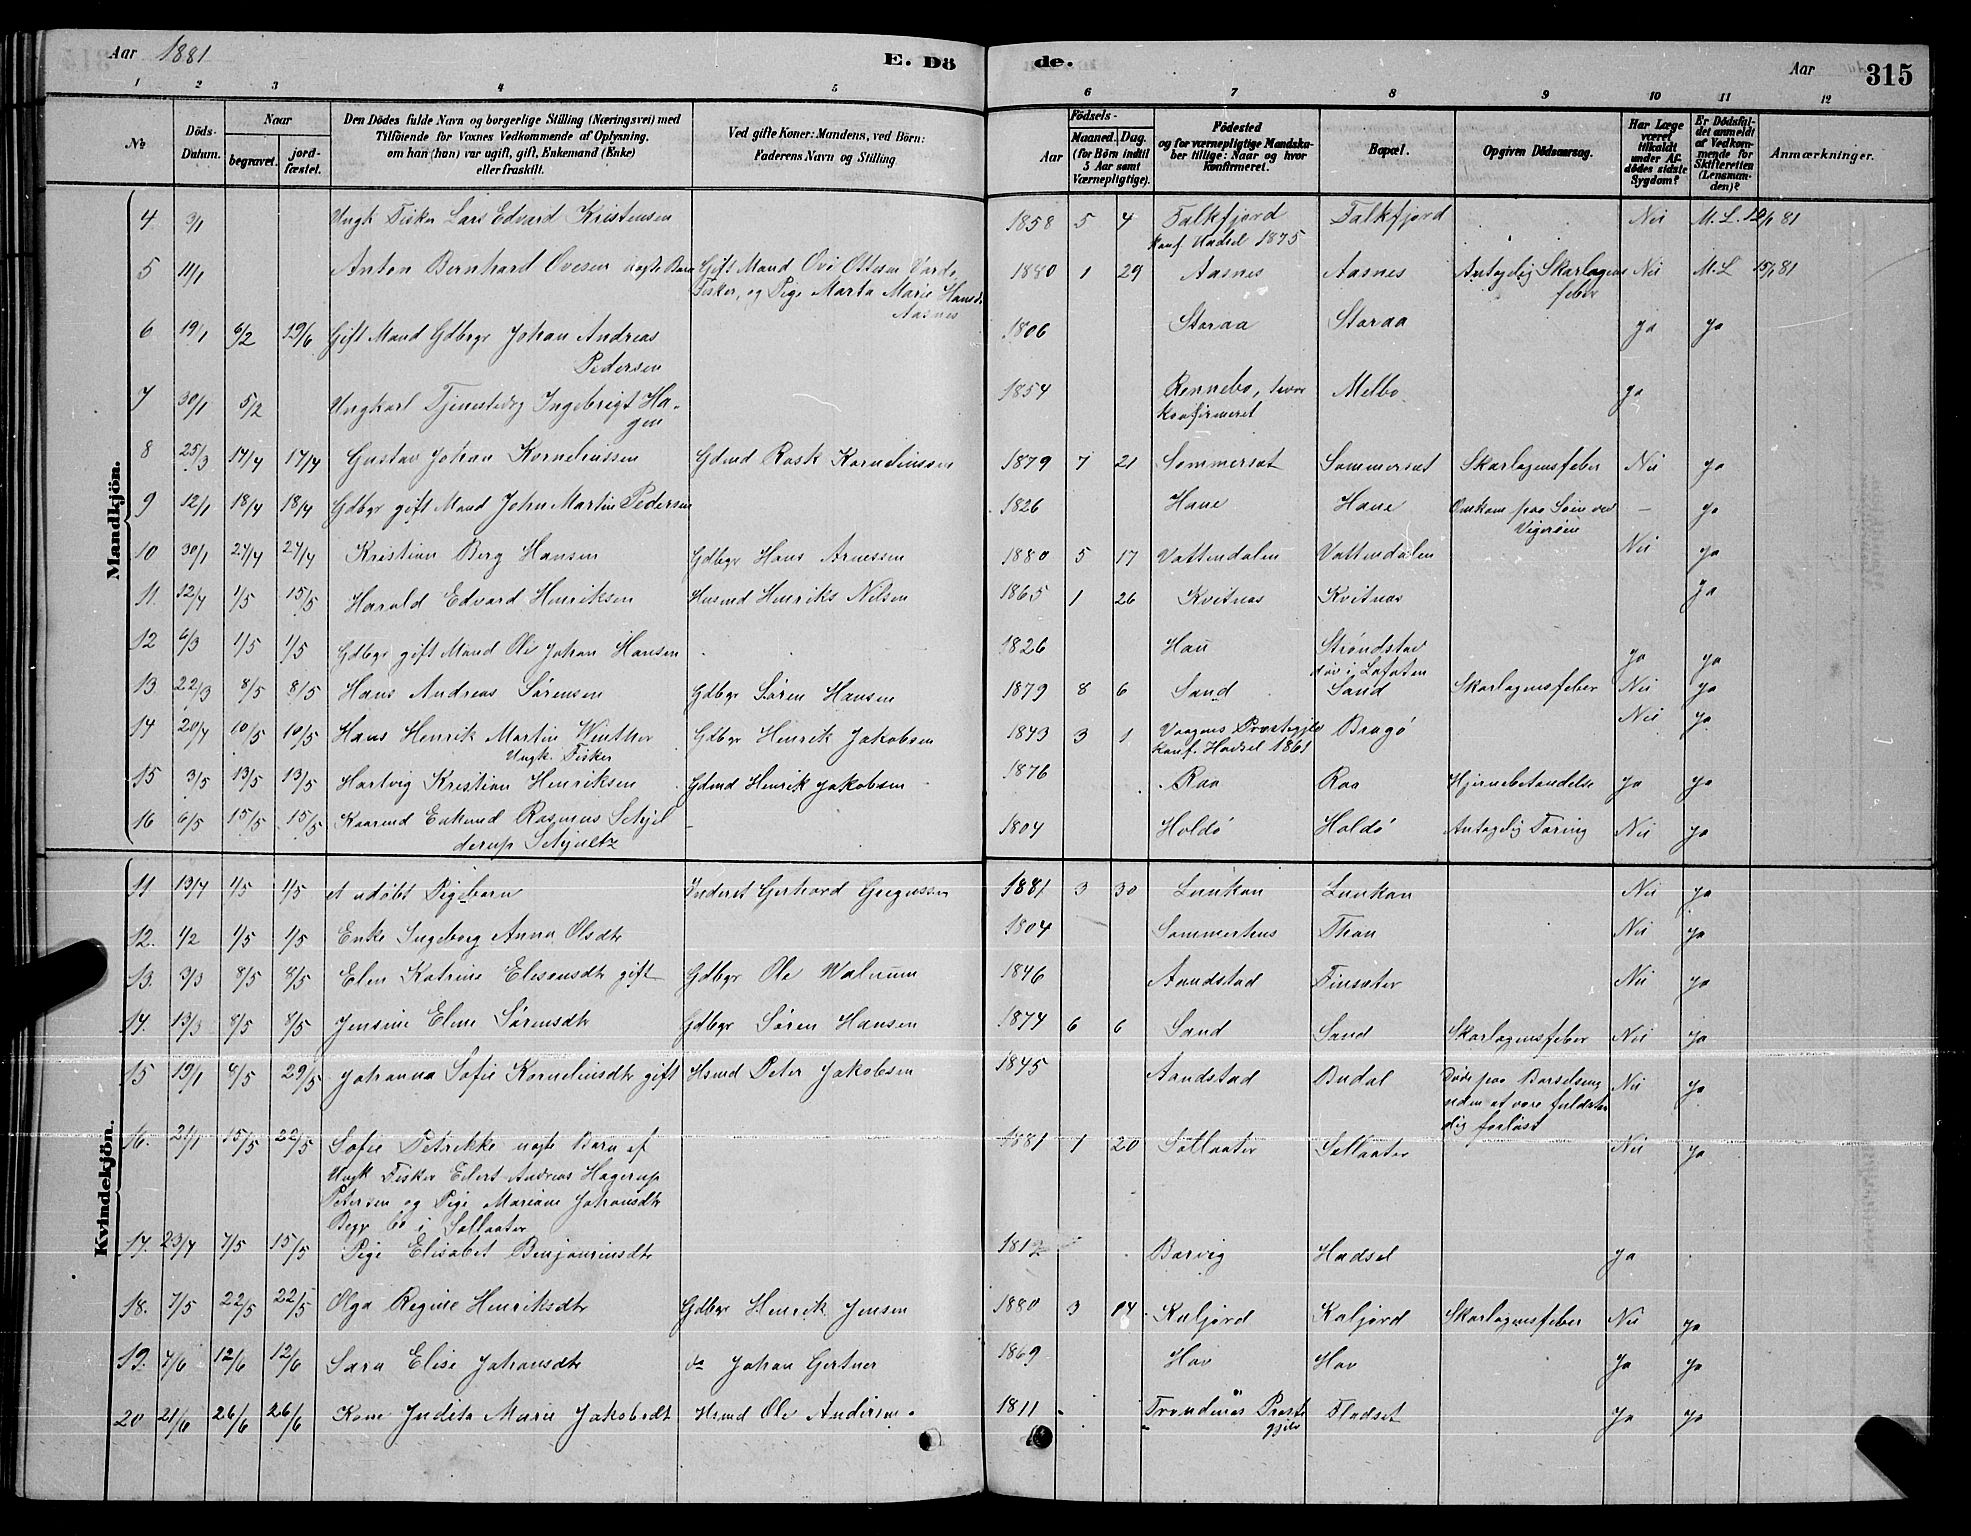 Aar 1881 E. Dö de. Aar 315
1 2 3 4 5 6 7 8 9 10 11 12
No
Döds-Datum.
Naar
begravet.
jord-fæstet.
Den Dödes fulde Navn og borgerlige Stilling (Næringsvei) med
Tilföiende for Voxnes Vedkommende af Oplysning.
om han (hun) var ugift, gift, Enkemand (Enke)
eller fraskilt.
Ved gifte Koner: Mandens, ved Börn:
Faderens Navn og Stilling
Födsels-
Aar Maaned. Dag.
(for Börn indtil
5 Aar samt
Værnepligtige).
Födested
og for værnepligtige Mandska-
ber tillige: Naar og hvor
konfirmeret.
Bopæl.
Opgiven Dödsaarsag.
Har Læge
været
tilkaldt
under Af-
dödes sidste
Sygdom?
Er Dödsfal-
det anmeldt
af Vedkom-
mende for
Skifteretten
(Lensman-
den)?
Anmærkninger.
Mandkjön.
4 3/1 Ungk Fisker Lars Edvard Kristensen 1858 5 4 Falkfjord Falkfjord Nei M. L. 12/1 81
konf. Hadsel 1875
5 11/1 Anton Bernhard Ovesen uægte Barn Gift Mand Ove Ottesen 1880 1 29 Aasnes Aasnes Antagelig Skarlagens Nei M. L 15/1 81
Fisker, og Pige Marta Marie Hansd. feber
Aasnes
6 19/1 6/2 19/6 Gift Mand Gdbgr Johan Andreas 1806 Storaa Storaa ja ja
Pedersen
7 30/1 5/2 Ungkarl Tjenestedrg Ingebrigt Ha- 1854 Rennebo, hvor Melbo ja
gen konfirmeret
8 25/3 17/4 17/4 Gustav Johan Korneliussen Gdmd Rask Korneliussen 1879 7 21 Sommerset Sommerset Skarlagensfeber Nei ja
9 12/1 18/4 18/4 Gdbgr gift Mand John Martin Pedersen 1826 Hane Hane Omkom paa Søen ved — ja
10 30/1 24/4 24/4 Kristian Berg Hansen Gdbgr Hans Arnessen 1880 5 17 Vattendalen Vattendalen Nei ja
11. 12/4 1/5 15/5 Harald Edvard Henriksen Husmd Henriks Nilsen 1865 1 26 Kvitnes Kvitnes ja
12 6/3 1/5 1/5 Gdbgr gift Mand Ole Johan Hansen 1826 Hau ja ja
død i Lofoten
13. 22/3 8/5 8/5 Hans Andreas Sørensen Gdbgr Søren Hansen 1879 8 6 Sand Sand Skarlagensfeber Nei ja
14 20/4 10/5 10/5 Hans Henrik Martin Winther Gdbgr Henrik Jakobsen 1843 3 1. Vaagens Præstegjeld Brugø Nei ja
Ungk. Fisker konf. Hadsel 1861
15 3/5 13/5 13/5 Hartvig Kristian Henriksen Gdmd Henrik Jakobsen 1876 Raa Raa Hjernebetændelse ja ja
16 6/5 15/5 15/5 Kaarmd Enkemd Rasmus Schjel 1804 Holdø Holdø Antagelig Tæring Nei ja
derup Schjultz
Kvindekjön.
11 13/4 1/5 1/5 et udøbt Pigebarn Inderst Gerhard Gregussen 1881 3 30 Lunkan Lunkan Nei ja
12. 4/2 1/5 1/5 Enke Ingeborg Anna Olsdtr 1804 Thon Nei ja
13. 3/3 8/5 8/5 Elen Katrine Elisensdtr gift Gdbgr Ole Walnum 1846 Aandstad Finsæter Nei ja
14. 13/3 8/5 8/5 Jensine Eline Sørensdtr Gdbgr Søren Hansen 1874 6 6 Sand Sand Skarlagensfeber Nei ja
15 19/1 8/5 29/5 Johanna Sofie Korneliusdtr gift Hsmd Peter Jakobsen 1845 Aandstad Budal Døde paa Barselseng Nei ja
uden at være fuldstæn
dig forløst
16. 21/1 15/5 22/5 Sofie Petrikke uægte Barn af 1881 1 20 Sellaater Sellaater Nei ja
Ungk Fisker Eilert Andreas Hagerup
Petersen og Pige Mariane Johansdtr
Begge bo i Sellaater
17. 23/4 7/5 15/5 Pige Elisabet Benjaminsdtr 1812 Borvig Hadsel ja
18. 7/5 22/5 22/5 Olga Regine Henriksdtr Gdbgr Henrik Jensen 1880 3 14 Kaljord Kaljord Skarlagensfeber Nei ja
19. 7/6 12/6 12/6 Sara Elise Johansdtr do Johan Gertner 1869 Hov Hov ja ja
20 21/6 26/6 26/6 Kone Indieta Marie Jakobsdtr Hsmd Ole Andersen 1811 Trondenæs Præste Fladset ja ja
gjeld